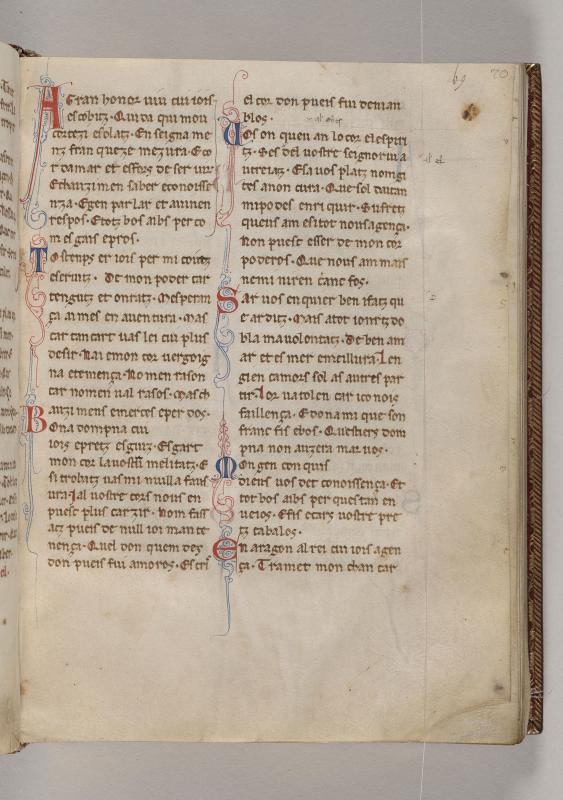 69 70
A Gran honor uiu cui iois
es cobitz. Quida qui mou
cortezi esolatz. Enseigna me
nz fran queze mezura. Eco
r damar et esfortz de ser uir.
Echauzimen saber econoisse
nza. Egen parlar et auinen
respos. Etotz bos aibs per co
m es gais epros.
Tostemps er iois per mi
eseruitz. De mon poder car
tengutz et onratz. Mesperan
ça ai mes en auentura. Mas
car tan cart uas lei cui plus
desir. Nai emon cor uergoig
na etemença. No men rason
car nomen ual rasos. Mas ch
auzimens emerces eper dos.
Bona dompna cui
iois epretz esguitz. Esgart
mon cor la uostra meitatz. E
si trobatz uas mi nulla faus
ura. Jal uostre cors nous en
puesc plus carzir. Nom fass
atz pueis de null ioi mante
nença. Quel don quem
don pueis fui amoros. Escri
el cor don pueis fui deman
blos.
Dos on quen an lo cor el espiri
tz. Ses del uostre seignoriu a
uretatz. Esa uos platz nomgi
tes anon cura. Que sol daitan
mi podes enriquir. Sufretz
queus am esi tot nous agença.
Non puesc esser de mon cor
poderos. Que nous am mais
nemi niren canc fos.
Sar uos enquier ben ifatz qu
e arditz. Mais atot ionretz do
bla ma uolontatz. De ben am
ar et es mer emeillura. Len
gien camors sol as autres par
tir. Lor ua tolen car ico nois
faillença. Edona mi que son
franc fis ebos. Quesiers dom
pna non auzera mar uos.
Mon gen conquis
dieus uos det conoissença. Et
tot bos aibs per questan en
ueios. Esis ecars uostre pre
tz cabalos.
En aragon al rei cui iois agen
ça. Tramet mon chan car